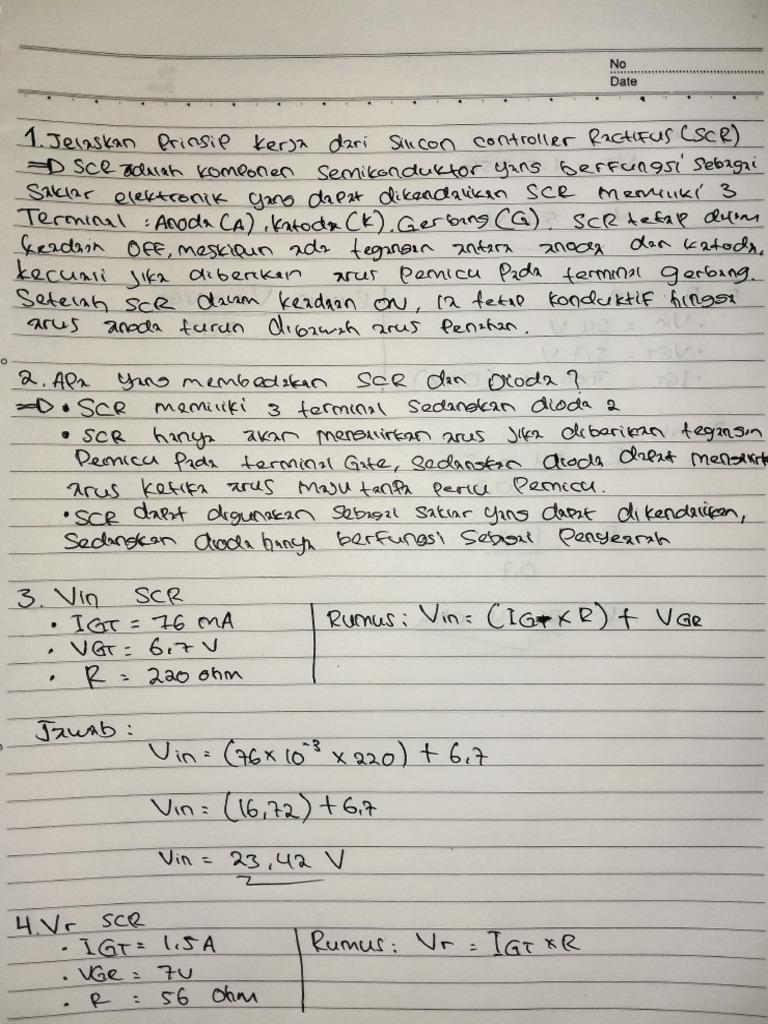 No
Date
1. Jelaskan Prinsip kerja dari Silicon controller Ractifus (SCR)
=> SCR adalah komponen Semikonduktor yang berfungsi sebagai
Saklar elektronik yang dapat dikendalikan SCR memiliki 3
Terminal : Anoda (A), Katoda (K), Gerbang (G). SCR tetap dalam
keadain OFF, meskipun ada tegangan antara anoda dan katoda,
kecuali jika diberikan arus Pemicu Pada terminal gerbang.
Setelah SCR dalam keadaan ON, ia tetap konduktif hingga
arus anoda turun dibawah arus Penahan.
2. Apa yang membedakan SCR dan Dioda?
=> • SCR memiliki 3 terminal Sedangkan dioda 2
• SCR hanya akan mengalirkan arus jika diberikan tegangan
Pemicu Pada terminal Gate, Sedangkan dioda dapat
arus ketika arus maju tanpa perlu Pemicu.
• SCR dapat digunakan Sebagai Saklar yang dapat dikendalikan,
Sedangkan dioda hanya berfungsi Sebagai Penyearah
3. Vin SCR
• IGT = 76 mA
• VGT = 6,7 V
• R = 220 ohm
Rumus : Vin = (IGT x R) + VGR
Jawab :
Vin = (76 x 10⁻³ x 220) + 6,7
Vin = (16,72) + 6,7
Vin = 23,42 V
4. Vr SCR
• IGT = 1.5 A
• VGR = 7V
• R = 56 Ohm
Rumus : Vr = IGT x R